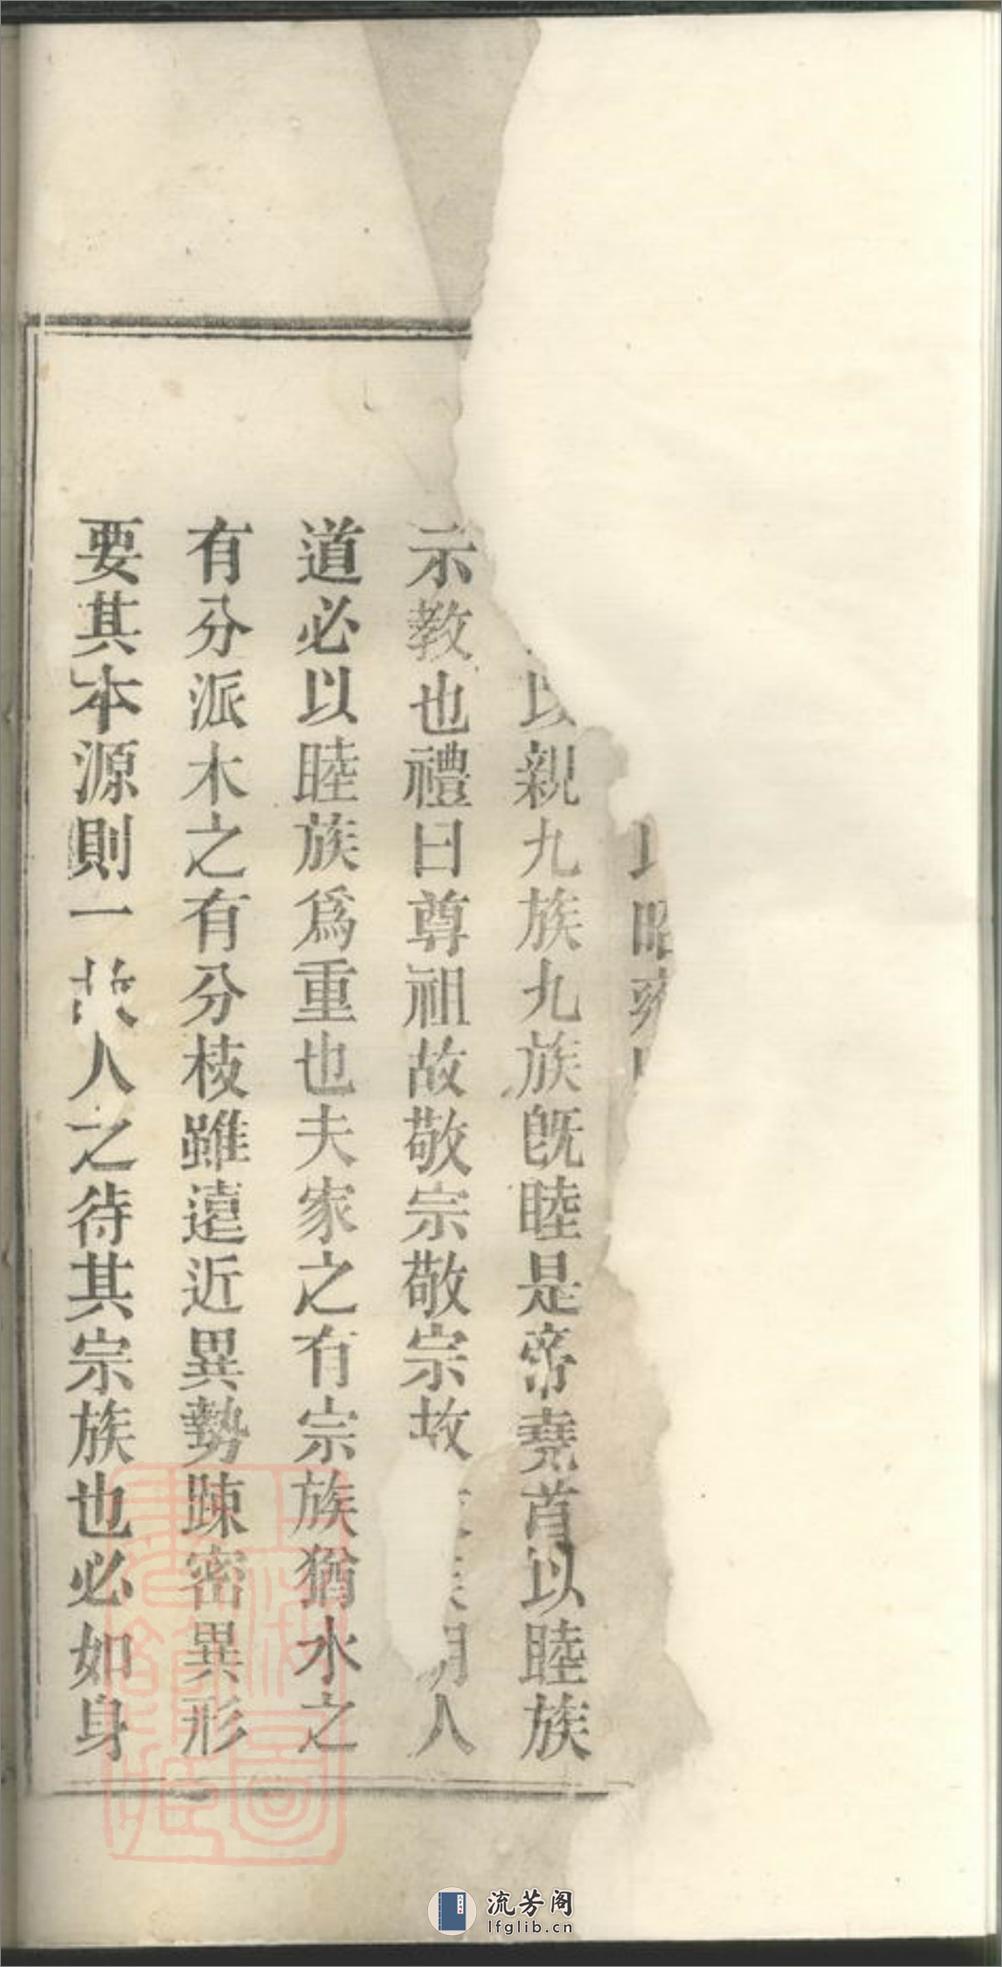 昭雍
以親九族九族既睦是帝堯首以睦族
示教也禮曰尊祖故敬宗敬宗故明人
道必以睦族爲重也夫家之有宗族猶水之
有分派木之有分枝雖遠近異勢踈密異形
要其本源則一故人之待其宗族也必如身
流芳阁
lfglib.cn